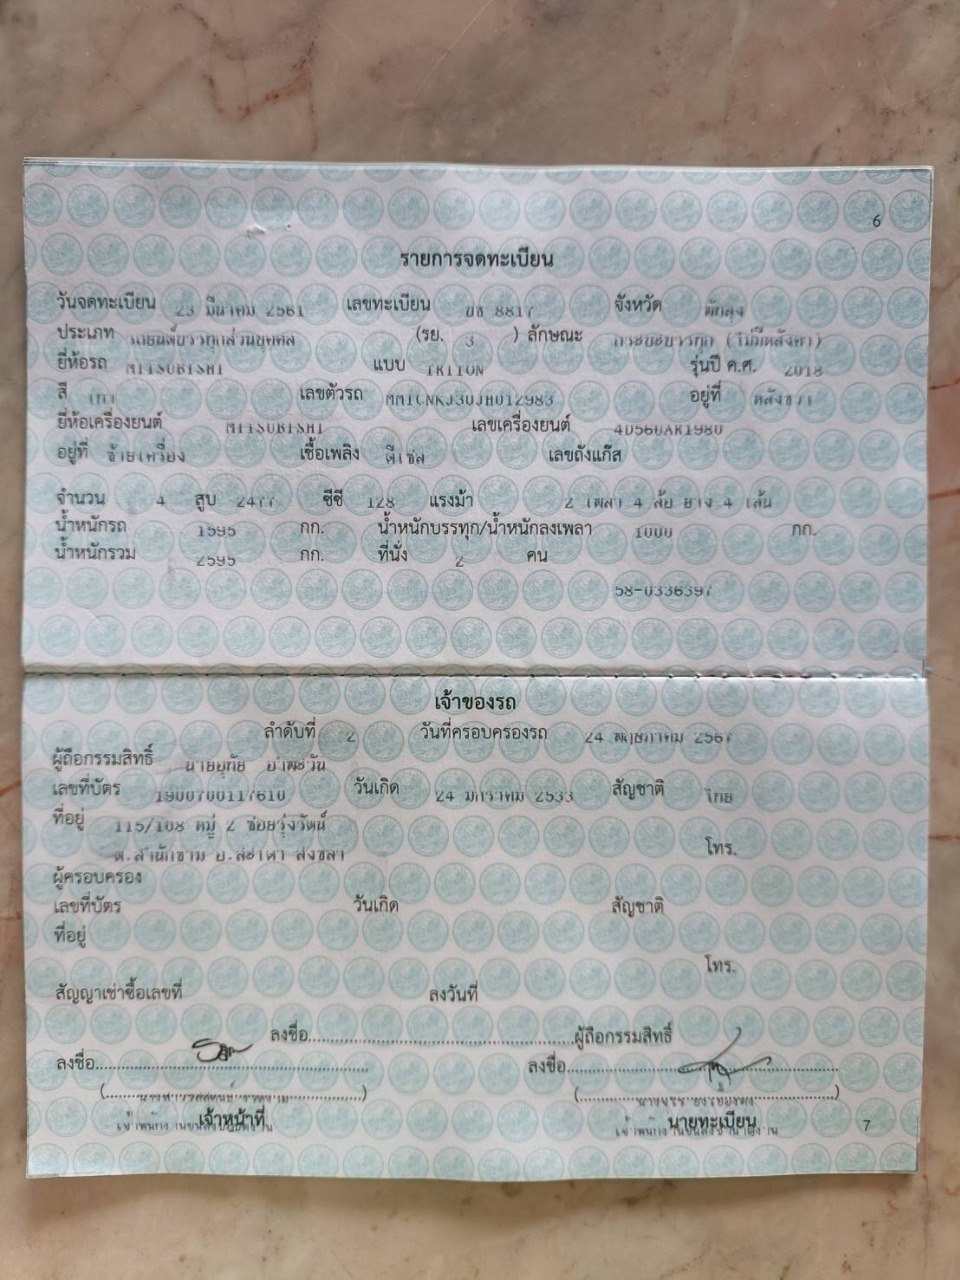 6
รายการจดทะเบียน
วันจดทะเบียน 23 มีนาคม 2561 เลขทะเบียน 8817 จังหวัด พัทลุง
ประเภท รถยนต์บรรทุกส่วนบุคคล (รย. 3 ) ลักษณะ กระบะบรรทุก (ไม่มีหลังคา)
ยี่ห้อรถ MITSUBISHI แบบ TRITON รุ่นปี ค.ศ. 2018
สี เทา เลขตัวรถ อยู่ที่ หลังขวา
ยี่ห้อเครื่องยนต์ MITSUBISHI เลขเครื่องยนต์ 4D56UAK1980
อยู่ที่ ซ้ายเครื่อง เชื้อเพลิง ดีเซล เลขถังแก๊ส
จำนวน 4 สูบ 2477 ซีซี 128 แรงม้า 2 เพลา 4 ล้อ ยาง 4 เส้น
น้ำหนักรถ 1595 กก. น้ำหนักบรรทุก/น้ำหนักลงเพลา 1000 กก.
น้ำหนักรวม 2595 กก. ที่นั่ง 2 คน
58-0336397
เจ้าของรถ
ลำดับที่ 2 วันที่ครอบครองรถ 24 พฤษภาคม 2567
ผู้ถือกรรมสิทธิ์ นายอุทัย
เลขที่บัตร 1900700117610 วันเกิด 24 มกราคม 2533 สัญชาติ ไทย
ที่อยู่ 115/108 หมู่ 2 ซอยรุ่งรัตน์
ต.สำนักขาม อ.สะเดา สงขลา โทร.
ผู้ครอบครอง
เลขที่บัตร วันเกิด สัญชาติ
ที่อยู่
โทร.
สัญญาเช่าซื้อเลขที่ ลงวันที่
ลงชื่อ ผู้ถือกรรมสิทธิ์
ลงชื่อ ลงชื่อ
เจ้าหน้าที่ นายทะเบียน
7